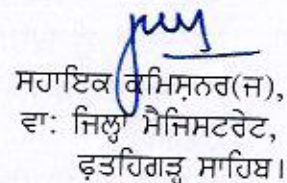 ਸਹਾਇਕ ਕਮਿਸ਼ਨਰ(ਜ),
ਵਾ: ਜਿਲ੍ਹਾ ਮੈਜਿਸਟਰੇਟ,
ਫ਼ਤਹਿਗੜ੍ਹ ਸਾਹਿਬ।